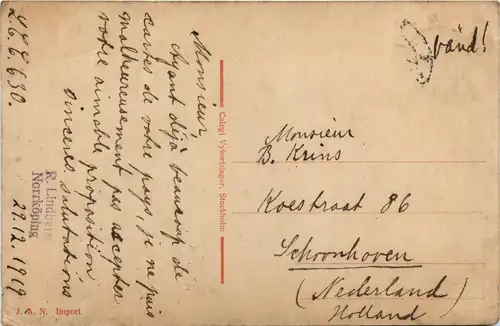 Monsieur
Ayant déjà beaucoup de
cartes de votre pays, je ne puis
malheureusement pas accepter
votre aimable proposition
Sinceres salutations
R. Lindberg
Norrköping
29.12.1919
L.T.E. 6.30.
Calegi Vykortslager, Stockholm
J. A. N. Import.
vänd!
Monsieur
B. Krins
Koestraat 86
Schoonhoven
(Nederland)
Holland